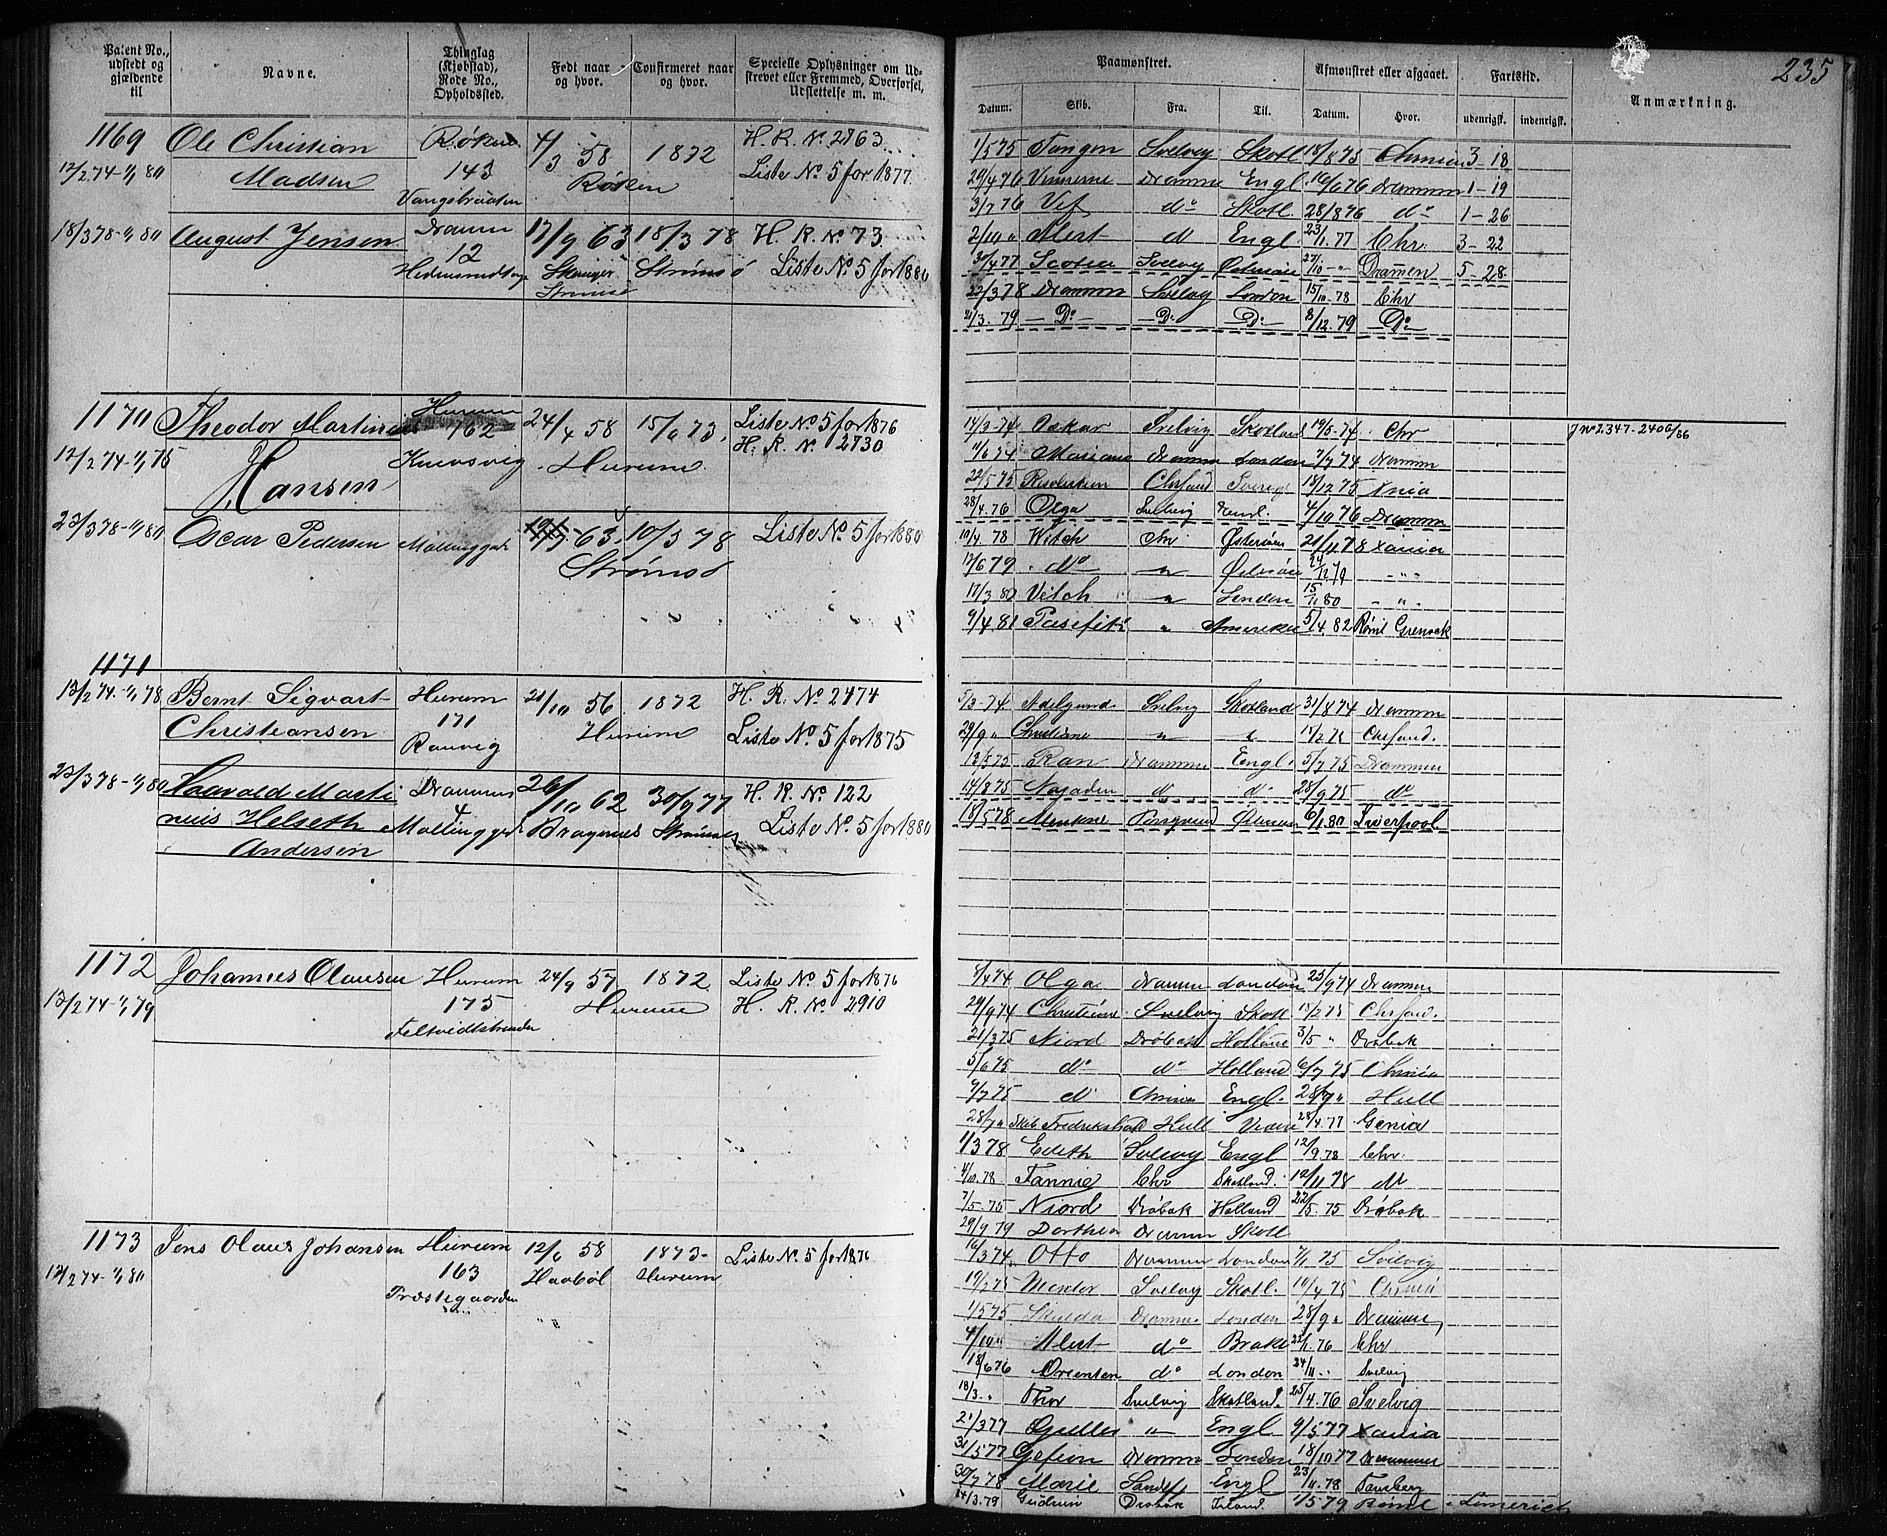 Patent No., udstedt og gjældende til
Navne.
Thinglag (Kjøbstad), Rode No., Opholdssted.
Født naar og hvor.
Confirmeret naar og hvor.
Specielle Oplysninger om Udstrevet eller Fremmed, Overførsel, Udslettelse m. m.
1169 Ole Christian Røken 4/3 58 1872 H. R. No 2763
12/2 74-1/1 80 Madsen 143 Røken Liste No 5 for 1877
18/3 78-1/1 80 August Jensen Dramm 17/9 63 18/3 78 H. R. No 73
12 Strømsø Liste No 5 for 1880
1170 Theodor Martinius Hurum 24/4 58 15/6 73 Liste No 5 for 1876
162 H. R. No 2730
12/2 74-1/1 75 Hansen Knivsvig Hurum
23/3 78-1/1 80 Oscar Pedersen Mollinggt 63 10/3 78 Liste No 5 for 1880
Strømsø
1171
13/2 74-1/1 78 Bernt Sigvart Hurum 21/10 56 1872 H. R. No 2474
Christiansen 171 Hurum Liste No 5 for 1875
Ranvig
23/3 78-1/1 80 Haavald Marti Drammen 26/10 62 30/9 77 H. R. No 122
nius Helseth 4 Mollinggt Bragernes Strømsø Liste No 5 for 1880
Andersen
1172 Johannes Olausen Hurum 24/9 57 1872 Liste No 5 for 1876
13/2 74-1/1 79 175 Hurum H. R. No 2910
Feltvedtstranden
1173 Jens Olaus Johansen Hurum 12/6 58 1873 Liste No 5 for 1876
13/2 74-1/1 80 163 Haabøl Hurum
Præstegaarden
235
Paamønstret.
Afmønstret eller afgaaet.
Fartstid.
Anmærkning.
Datum. Skib. Fra. Til. Datum. Hvor. udenrigsk. indenrigsk.
1/5 75 Tangen Svelvig Skotl 18/8 75 Chrnia 3 18
29/4 76 Vennerne Dramm Engl. 16/6 76 Drammen 1-19
3/7 76 do Skotl. 28/8 76 do 1-26
2/10 " Alert d Engl. 23/1 77 Chr. 3-22
30/4 77 Scotia Svelvig Østersøen 27/10 -"- Drammen 5-28
22/3 78 Drammen Svelvig London 15/10 78 Chr
21/3. 79 - Do - - Do - Do - 8/12. 79 - Do -
14/3 74 Oskar Svelvig Skotland 19/5 74 Chr J No 2347-2406/66
11/6 74 Mariane Dramm London 7/7 74 Dramm
22/5 75 Resolution Chrsand Sverige 18/12 75 Xnia
28/4. 76 Olga Svelvig Engl. 4/10 76 Dramm
10/4 78 Witch Chr Østersøen 21/4 78 Xania
12/6 79 do " Østersøen
17/3 80 Vitch " London 15/11 80 "
9/4 81 Pasefik " Amerika 5/4 82 Rømt Grenock
5/3 74 Adelgunde Svelvig Skotland 31/8 74 Dramm
29/9 " Christiane " " Chrsand.
12/5 75 Ran Dramm Engl. 3/7 75 Drammen
14/8 75 Najaden d d 28/9 75 do
18/5 78 Mentone Porsgrund Østersøen 6/1 80 Liverpool
8/4 74 Olga Dramm London 23/9 74 Dramm
29/9 74 Christiane Svelvig Skotl 14/2 75 Chrsand.
21/3 75 Niord Drøbak Holland 3/5 " Drøbak
5/6 75 do do Holland 6/7 75 Chrnia
9/7 75 d Chrnia Engl. 28/7 " Hull
28/7 " Skib Fredrikstad Hull 28/4. 77 Genia
1/3 78 Edith Svelvig Engl 12/9. 78 Chr.
4/10. 78 Fannie Chr Skotland. 12/11 78 do
7/5. 75 Niord Drøbak Holland 22/5. 75 Drøbak
29/9 79 Dorthea Dramm Skotl
16/3 74 Otto Dramm London 7/1 75 Svelvig
19/2 75 Mentor Svelvig Skotl. 19/4 75 Chrnia
1/5 75 Dramm London 28/9 " Dramm
4/10 " Alert do Brake 22/1 76 Chr
18/6 76 Orienten do London 24/11 " Svelvig
18/3 " Thor Svelvig Skotland. 25/4. 76 Svelvig
21/3 77 " Engl 9/5 77 Xania
31/5 77 Gefion Dramm London 18/10 77 Drammen
30/7 78 Marie Sandef Engl 23/11. 78 Tønsberg
24/3. 79 Gudrun Drøbak Irland. 1/5 79 Rømt Limerick